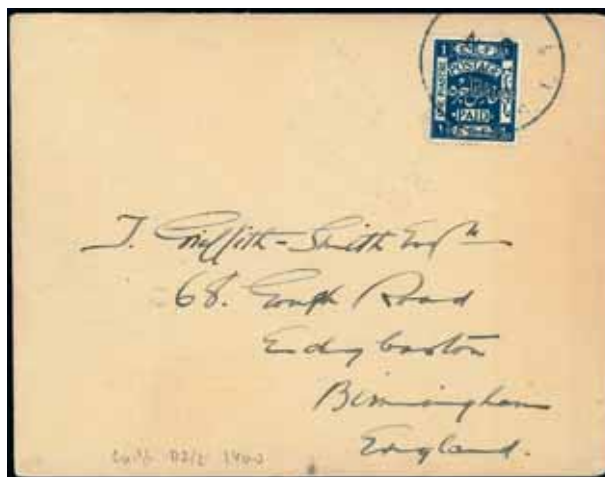 1
POSTAGE
PAID
J. Griffith-Smith Esq
68. Gough Road
Edgbaston
Birmingham
England.